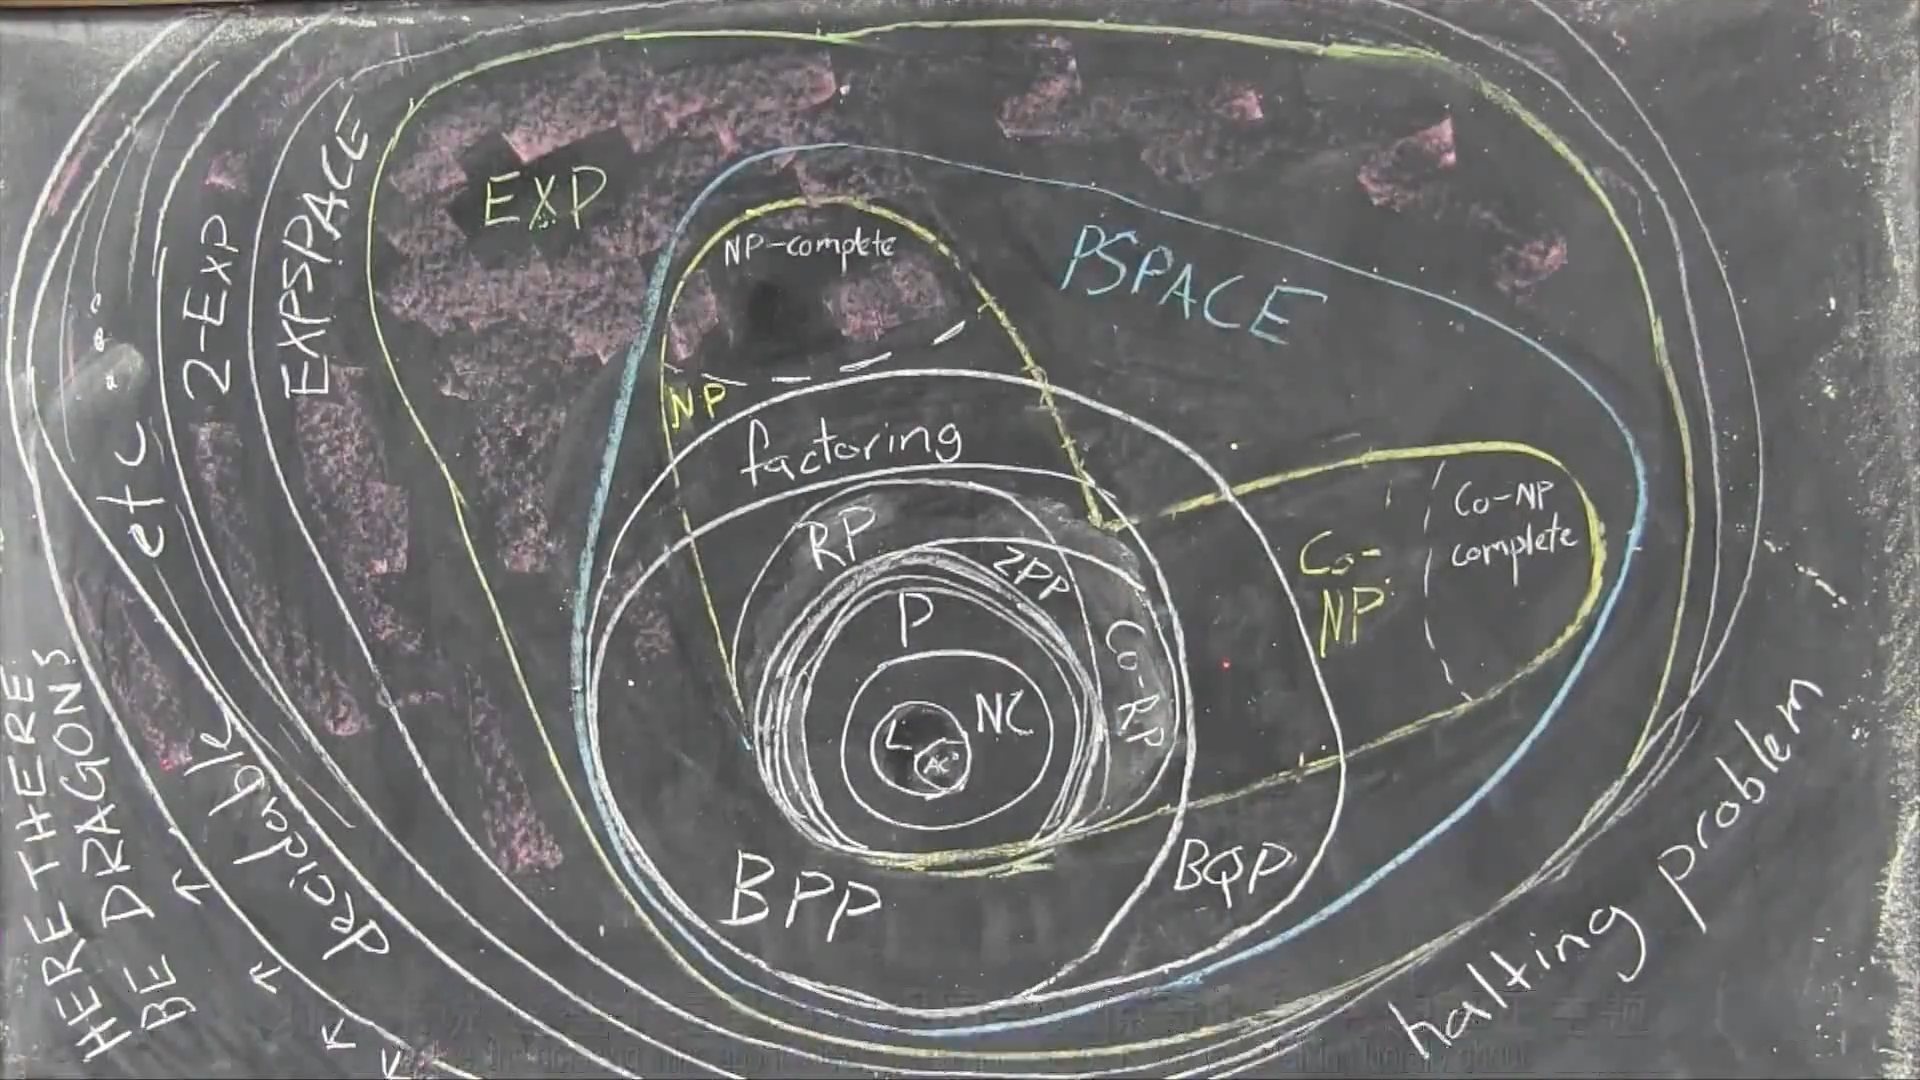 EXP
NP-complete
PSPACE
EXPSPACE
2-EXP
etc
NP
factoring
RP
ZPP
P
Co-RP
NC
L
AC⁰
Co-
NP
Co-NP
complete
BPP
BQP
decidable
HERE THERE
BE DRAGONS
halting problem